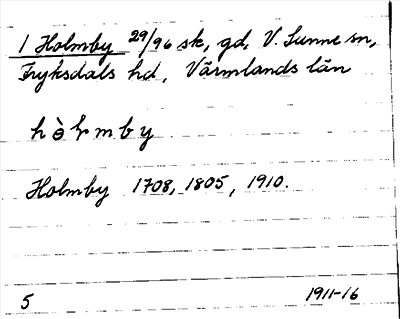 1 Holmby 29/96 sk, gd, V. Sunne sn,
Fryksdals hd, Värmlands län
Holmby 1708, 1805, 1910.
5 1911-16